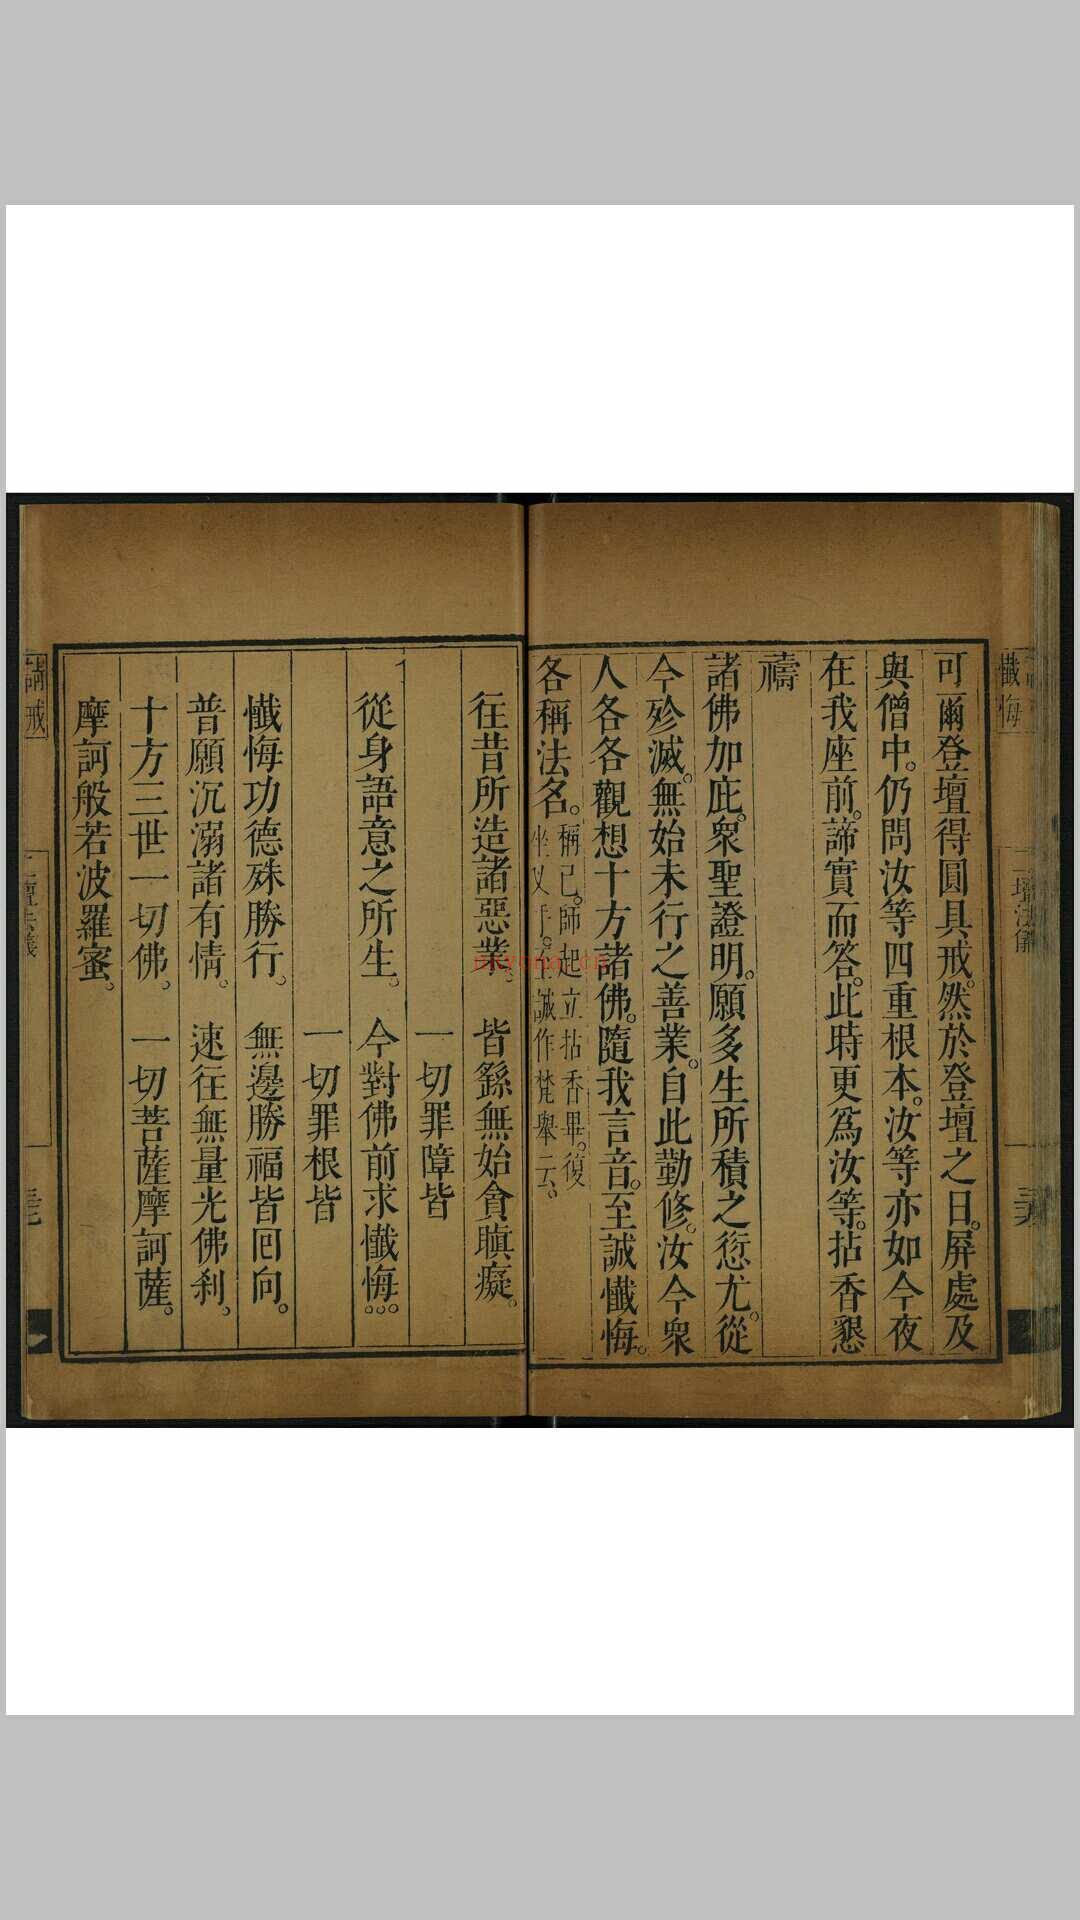 可爾登壇得圓具戒。然於登壇之日。屏處及
與僧中。仍問汝等四重根本。汝等亦如今夜
在我座前。諦實而答。此時更爲汝等。拈香懇
禱
諸佛加庇。衆聖證明。願多生所積之愆尤。從
今殄滅。無始未行之善業。自此勤修。汝今衆
人各各觀想十方諸佛。隨我言音。至誠懺悔。
各稱法名。
稱已。師起立拈香畢。復
坐叉手。至誠作梵舉云。
往昔所造諸惡業。 皆繇無始貪瞋癡。
一切罪障皆
從身語意之所生。 今對佛前求懺悔。。。
一切罪根皆
懺悔功德殊勝行。 無邊勝福皆囘向。
普願沉溺諸有情。 速往無量光佛刹。
十方三世一切佛。 一切菩薩摩訶薩。
摩訶般若波羅蜜。
懺悔
二壇法儀
三六
請戒
二壇法儀
三七